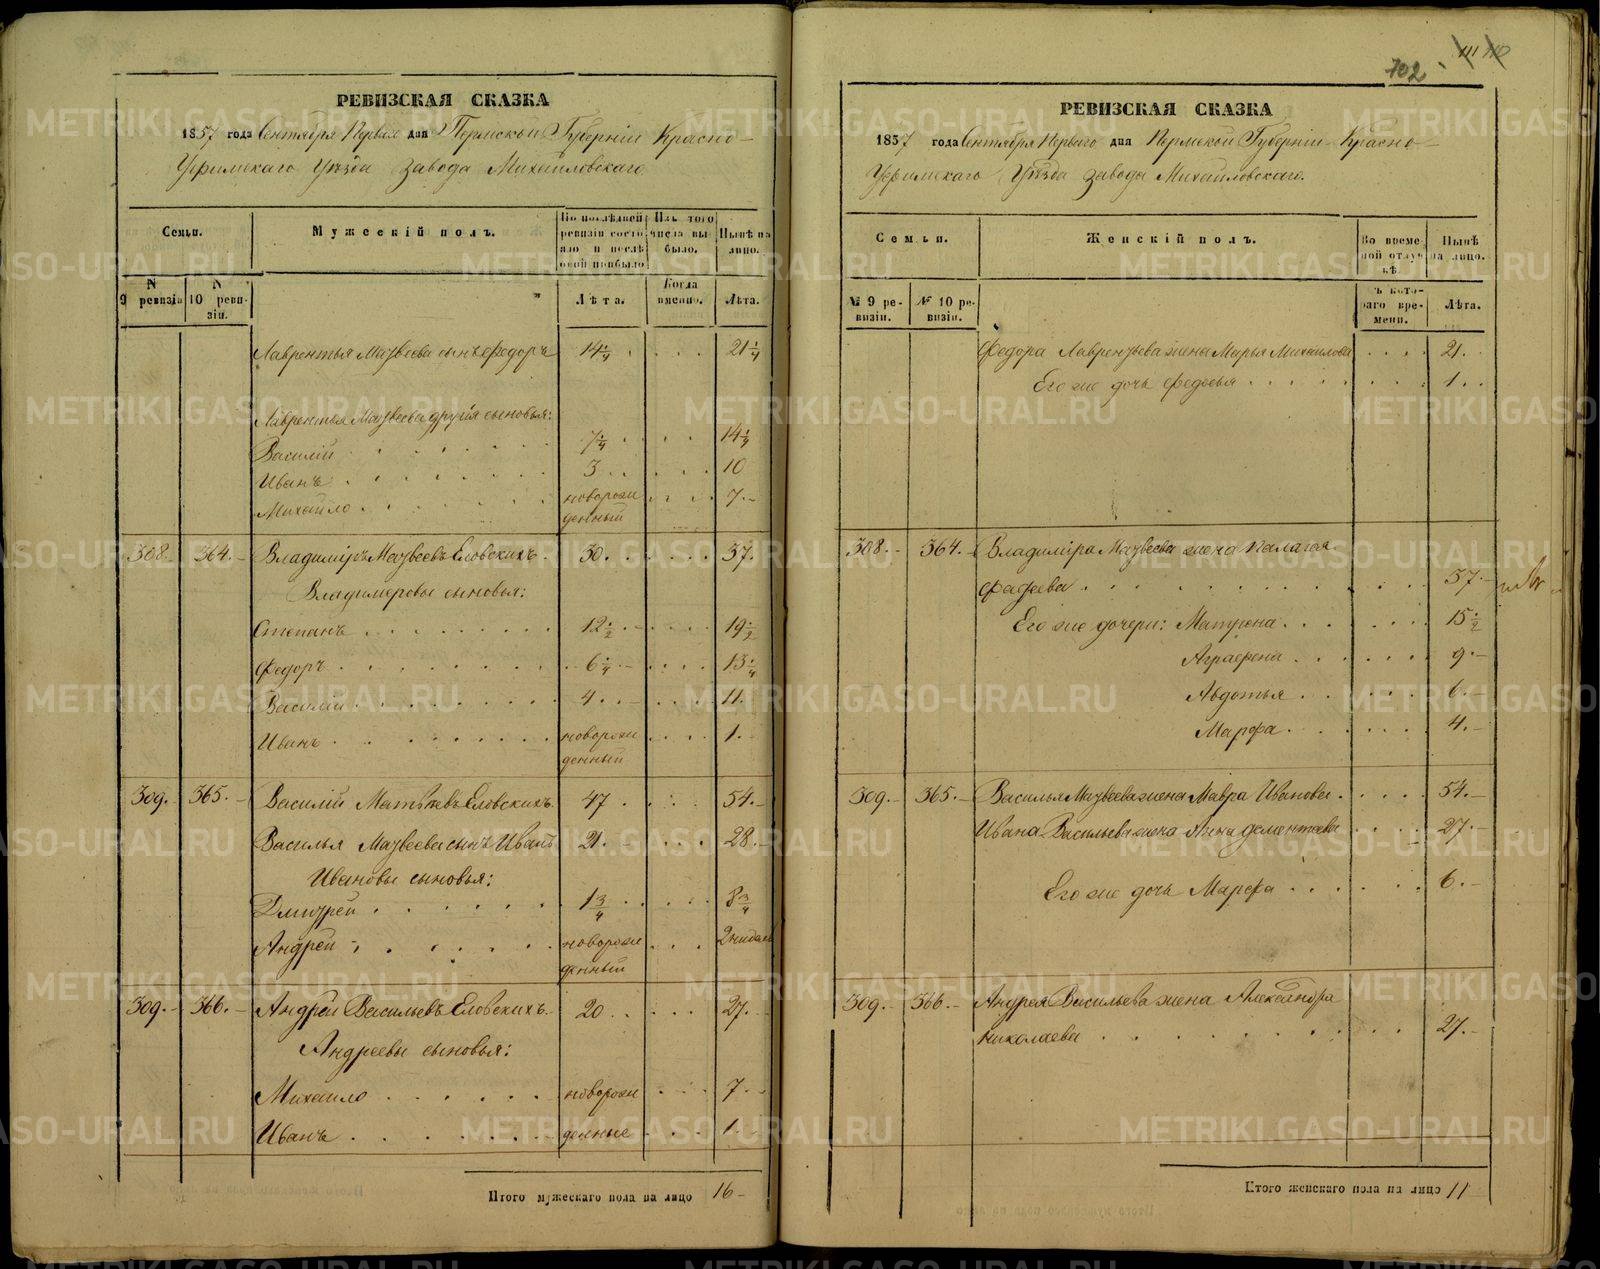 РЕВИЗСКАЯ СКАЗКА
1857 года Сентября Перваго дня Пермской Губерніи Красно-
Уфимскаго Уѣзда завода Михайловскаго
Семьи.
Мужескій полъ.
По послѣдней ревизіи состояло и послѣ оной прибыло
Изъ того числа выбыло.
Нынѣ на лицо.
№ 9 ревизіи
№ 10 ревизіи.
Лѣта.
Когда именно.
Лѣта.
Лаврентья Матвеева сынъ Федоръ 14 1/4 21 1/4
Лаврентья Матвеева другія сыновья:
Василій 7 1/4 14 1/4
Иванъ 3 10
Михайло новорожденный 7
308. 364. Владиміръ Матвеевъ Еловскихъ 50. 57.
Владимеровы сыновья:
Степанъ 12 1/2 19 1/2
Федоръ 6 1/4 13 1/4
Василій 4 11
Иванъ новорожденный 1
309. 365. Василій Матвѣевъ Еловскихъ 47 54.
Василья Матвеева сынъ Иванъ 21. 28.
Ивановы сыновья:
Дмитрей 1 3/4 8 3/4
Андрей новорожденный 2 нидели
309. 366. Андрей Васильевъ Еловскихъ 20 27.
Андреевы сыновья:
Михайло новорож 7
Иванъ денные 1
Итого мужескаго пола на лицо 16
702
РЕВИЗСКАЯ СКАЗКА
1857 года Сентября Перваго дня Пермской Губерніи Красно-
Уфимскаго Уѣзда завода Михайловскаго.
Семьи.
Женскій полъ.
Во временной отлучкѣ.
Нынѣ на лицо.
№ 9 ревизіи.
№ 10 ревизіи.
Съ котораго времени.
Лѣта.
Федора Лаврентьева жена Марья Михаилова 21.
Его же дочь Федосья 1
308. 364. Владиміра Матвеева жена Палагея
Фадеева 57
Его же дочери: Матрена 15 1/2
Аграфена 9
Авдотья 6
Марфа 4
309. 365. Василья Матвеева жена Мавра Иванова 54.
Ивана Васильева жена Анна Дементеева 27
Его же дочь Марфа 6
309. 366. Андрея Васильева жена Александра
Николаева 27
Итого женскаго пола на лицо 11
METRIKI.GASO-URAL.RU